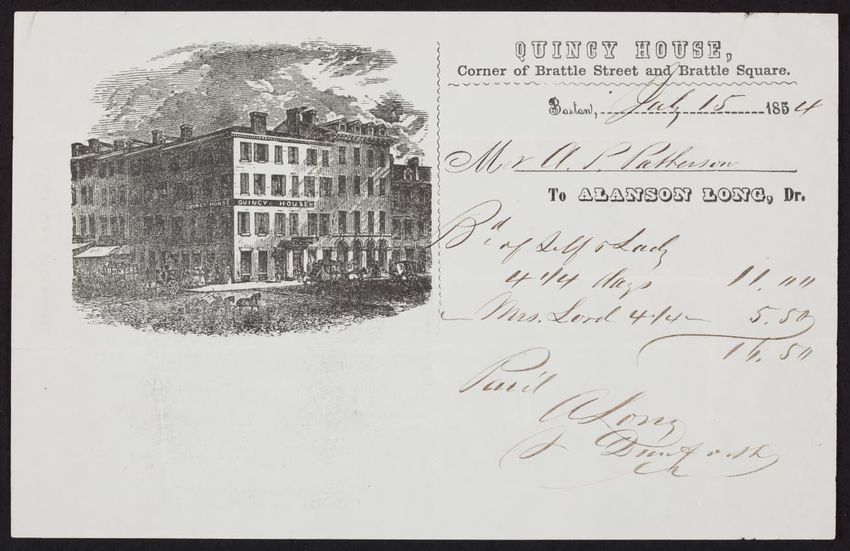 QUINCY HOUSE,
Corner of Brattle Street and Brattle Square.
Boston, July 15 1854
Mr A. P. Patterson
To ALANSON LONG, Dr.
QUINCY HOUSE
QUINCY HOUSE
Bd of Self & Lady
4 1/4 days 11.00
Mrs. Lord 4 1/4 5.50
16.50
Paid
A Long
Danforth